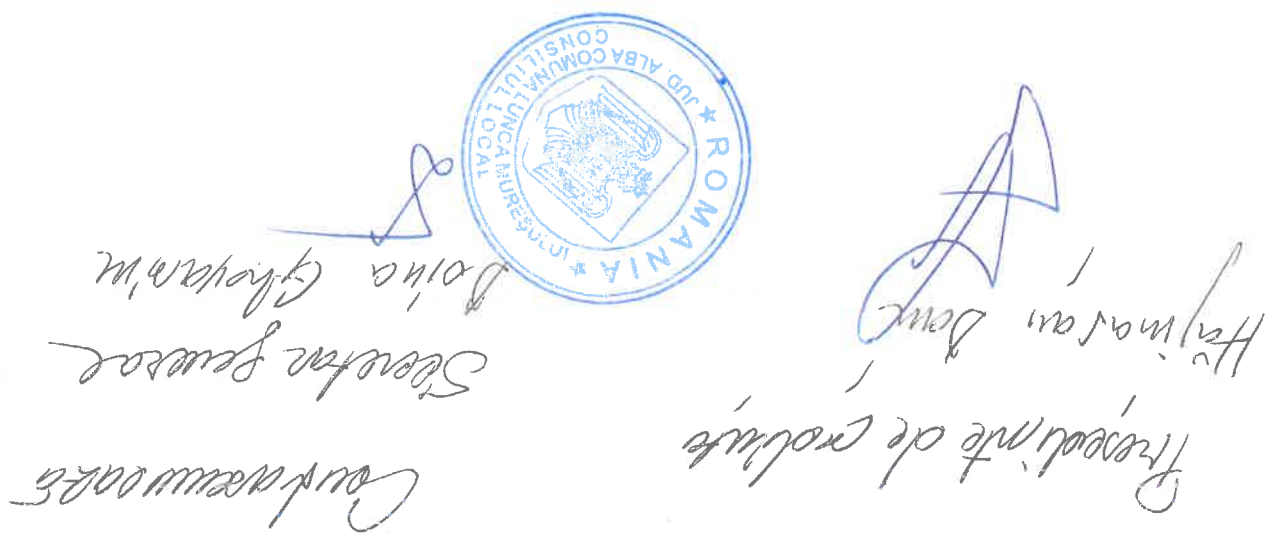 Președinte de ședință
Dan
Contrasemnează
Secretar general
Doina
★ ROMANIA ★
JUD. ALBA COMUNA LUNCA MUREŞULUI
CONSILIUL LOCAL